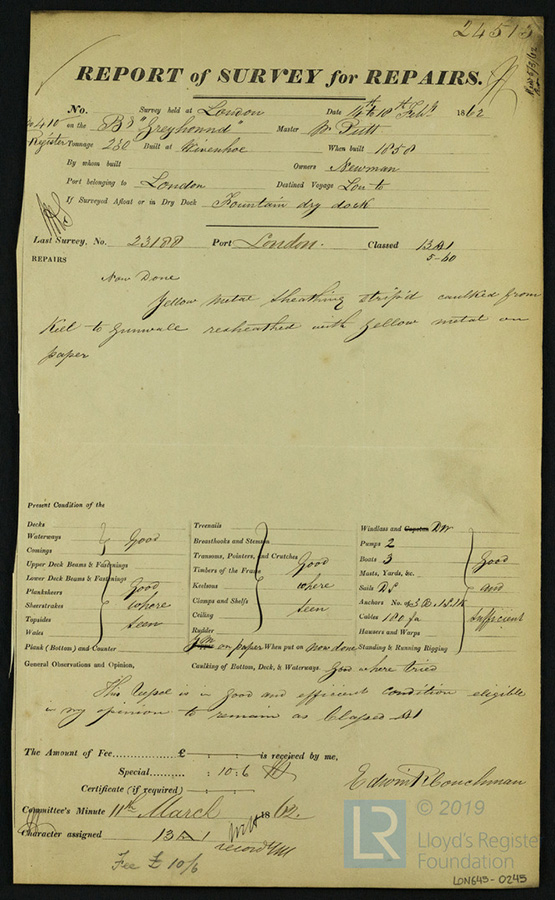 24513
REPORT of SURVEY for REPAIRS.
No. Survey held at London Date 14th & 18th Feby 1862
No 410 on the Bg "Greyhound" Master Wm Pitt
Register Tonnage 230 Built at Wivenhoe When built 1858
By whom built Owners Newman
Port belonging to London Destined Voyage Lon to
If Surveyed Afloat or in Dry Dock Fountain dry dock
Last Survey, No. 23188 Port London. Classed 13 A1
5-60
REPAIRS
Now Done
Yellow metal sheathing strip'd caulked from
Keel to Gunwale resheathed with yellow metal on
paper
Present Condition of the
Decks
Waterways Good
Comings
Upper Deck Beams & Fastenings
Lower Deck Beams & Fastenings
Planksheers Good
Sheerstrakes where
Topsides seen
Wales
Plank (Bottom) and Counter
Treenails
Breasthooks and Stemson
Transoms, Pointers, and Crutches
Timbers of the Frame Good
Keelsons where
Clamps and Shelfs seen
Ceiling
Rudder
YM on paper When put on now done
Windlass and Capstan
Pumps 2
Boats 3 Good
Masts, Yards, &c.
Sails and
Anchors No. of
Cables 180 fa sufficient
Hausers and Warps
Standing & Running Rigging
General Observations and Opinion, Caulking of Bottom, Deck, & Waterways Good where tried
This Vessel is in good and efficient condition eligible
in my opinion to remain as Classed A1
The Amount of Fee £ : : is received by me,
Special : 10 : 6
Certificate (if required) : :
Edwin P Couchman
Committee's Minute 11th March 1862.
Character assigned 13 A 1
record YM
Fee £ 10/6
© 2019
LR
Lloyd's Register
Foundation
LON645-0245